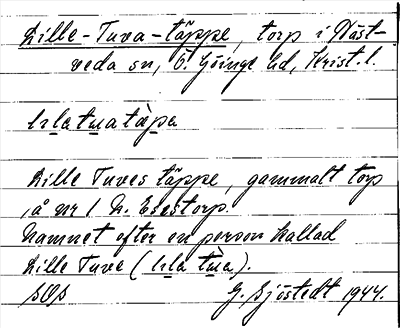 Lille-Tuva-täppe, torp i Näst-
veda sn, Ö. Göinge hd, Krist. l.
Lille Tuves täppe, gammalt torp
på nr 1 N. Esestorp.
Namnet efter en person kallad
Lille Tuve
G. Sjöstedt 1944.